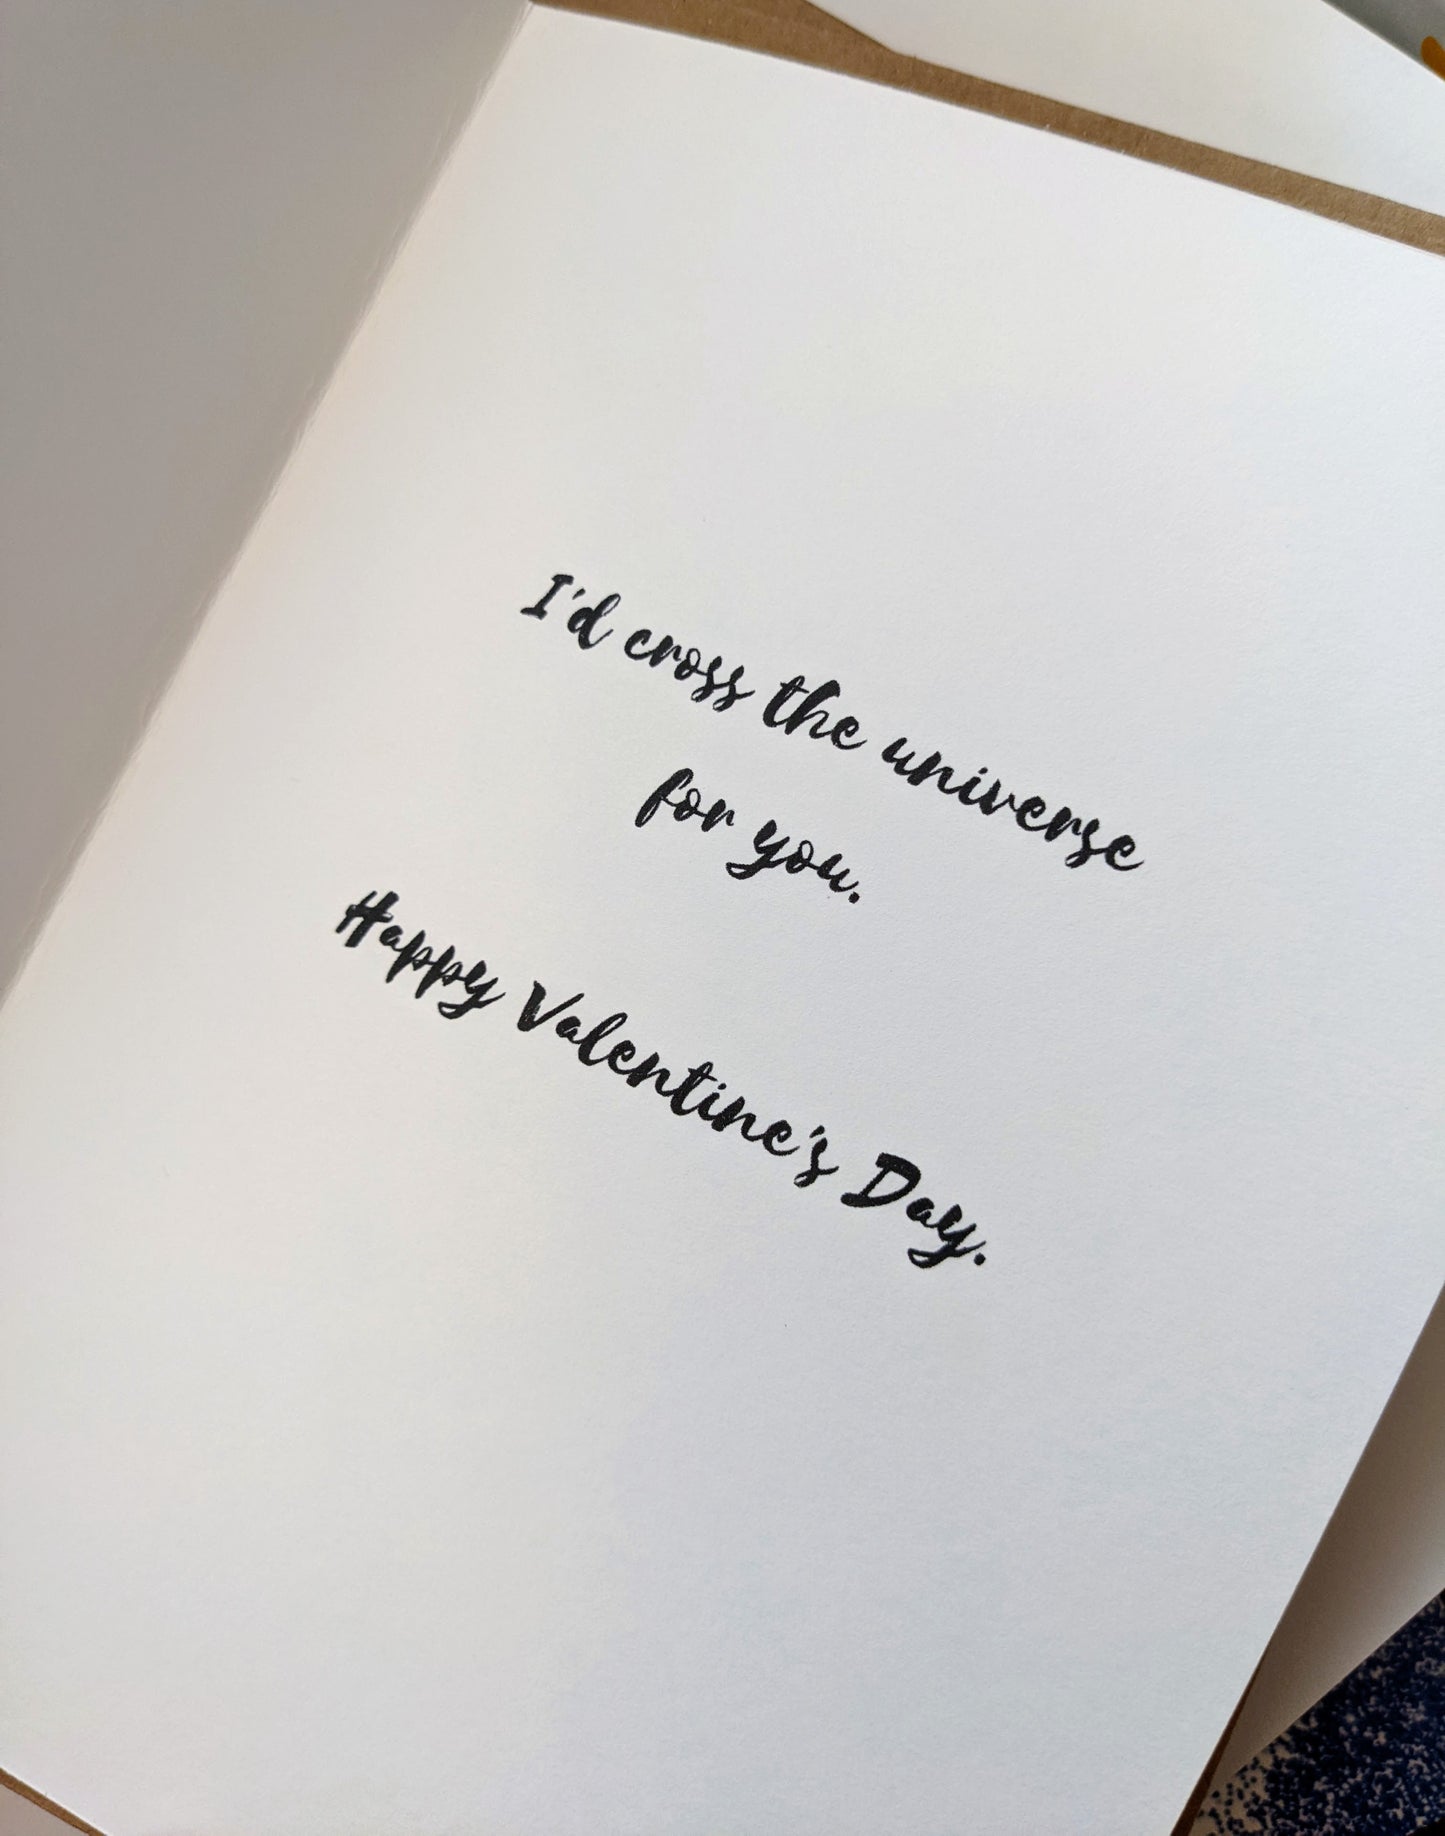 I'd cross the universe
for you.
Happy Valentine's Day.